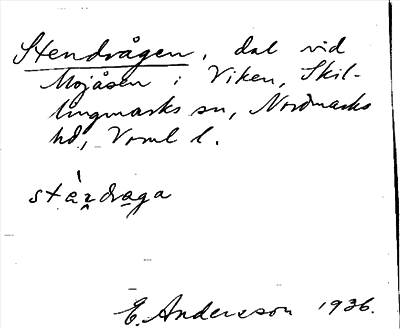 Stendrågen, dal vid
Mojåsen i Viken, Skil-
lingmarks sn, Nordmarks
hd, Vrml l.
E. Andersson 1936.